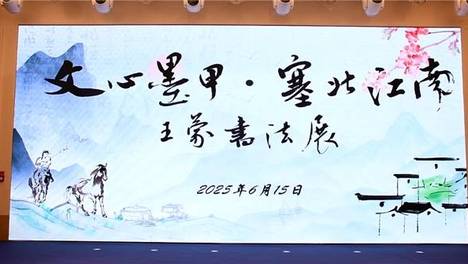 文心墨甲·塞北江南
王蒙书法展
2025年6月15日